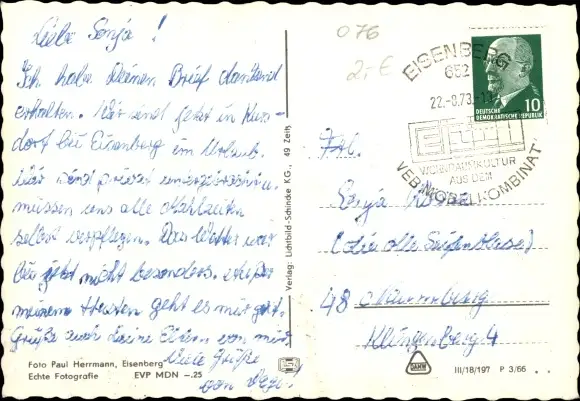 Liebe Sonja!
Ich habe Deinen Brief dankend
erhalten. Wir sind jetzt in Kurs-
dorf bei Eisenberg im Urlaub.
Wir sind privat
müssen uns alle Mahlzeiten
selbst verpflegen. Das Wetter war
bis jetzt nicht besonders. Außer
meinem Husten geht es mir gut.
Grüße auch Deine Eltern von mir
Viele Grüße
von
Foto Paul Herrmann, Eisenberg
Echte Fotografie EVP MDN -.25
Verlag: Lichtbild-Schincke KG., 49 Zeitz
076
2,-€
EISENBERG
652
22.-8.73.
WOHNRAUMKULTUR
AUS DEM
VEB MÖBELKOMBINAT
10
DEUTSCHE
DEMOKRATISCHE REPUBLIK
Frl.
Sonja
(Die olle Seifenblase)
48 Naumburg
Klingenberg 4
DAHW
III/18/197 P 3/66